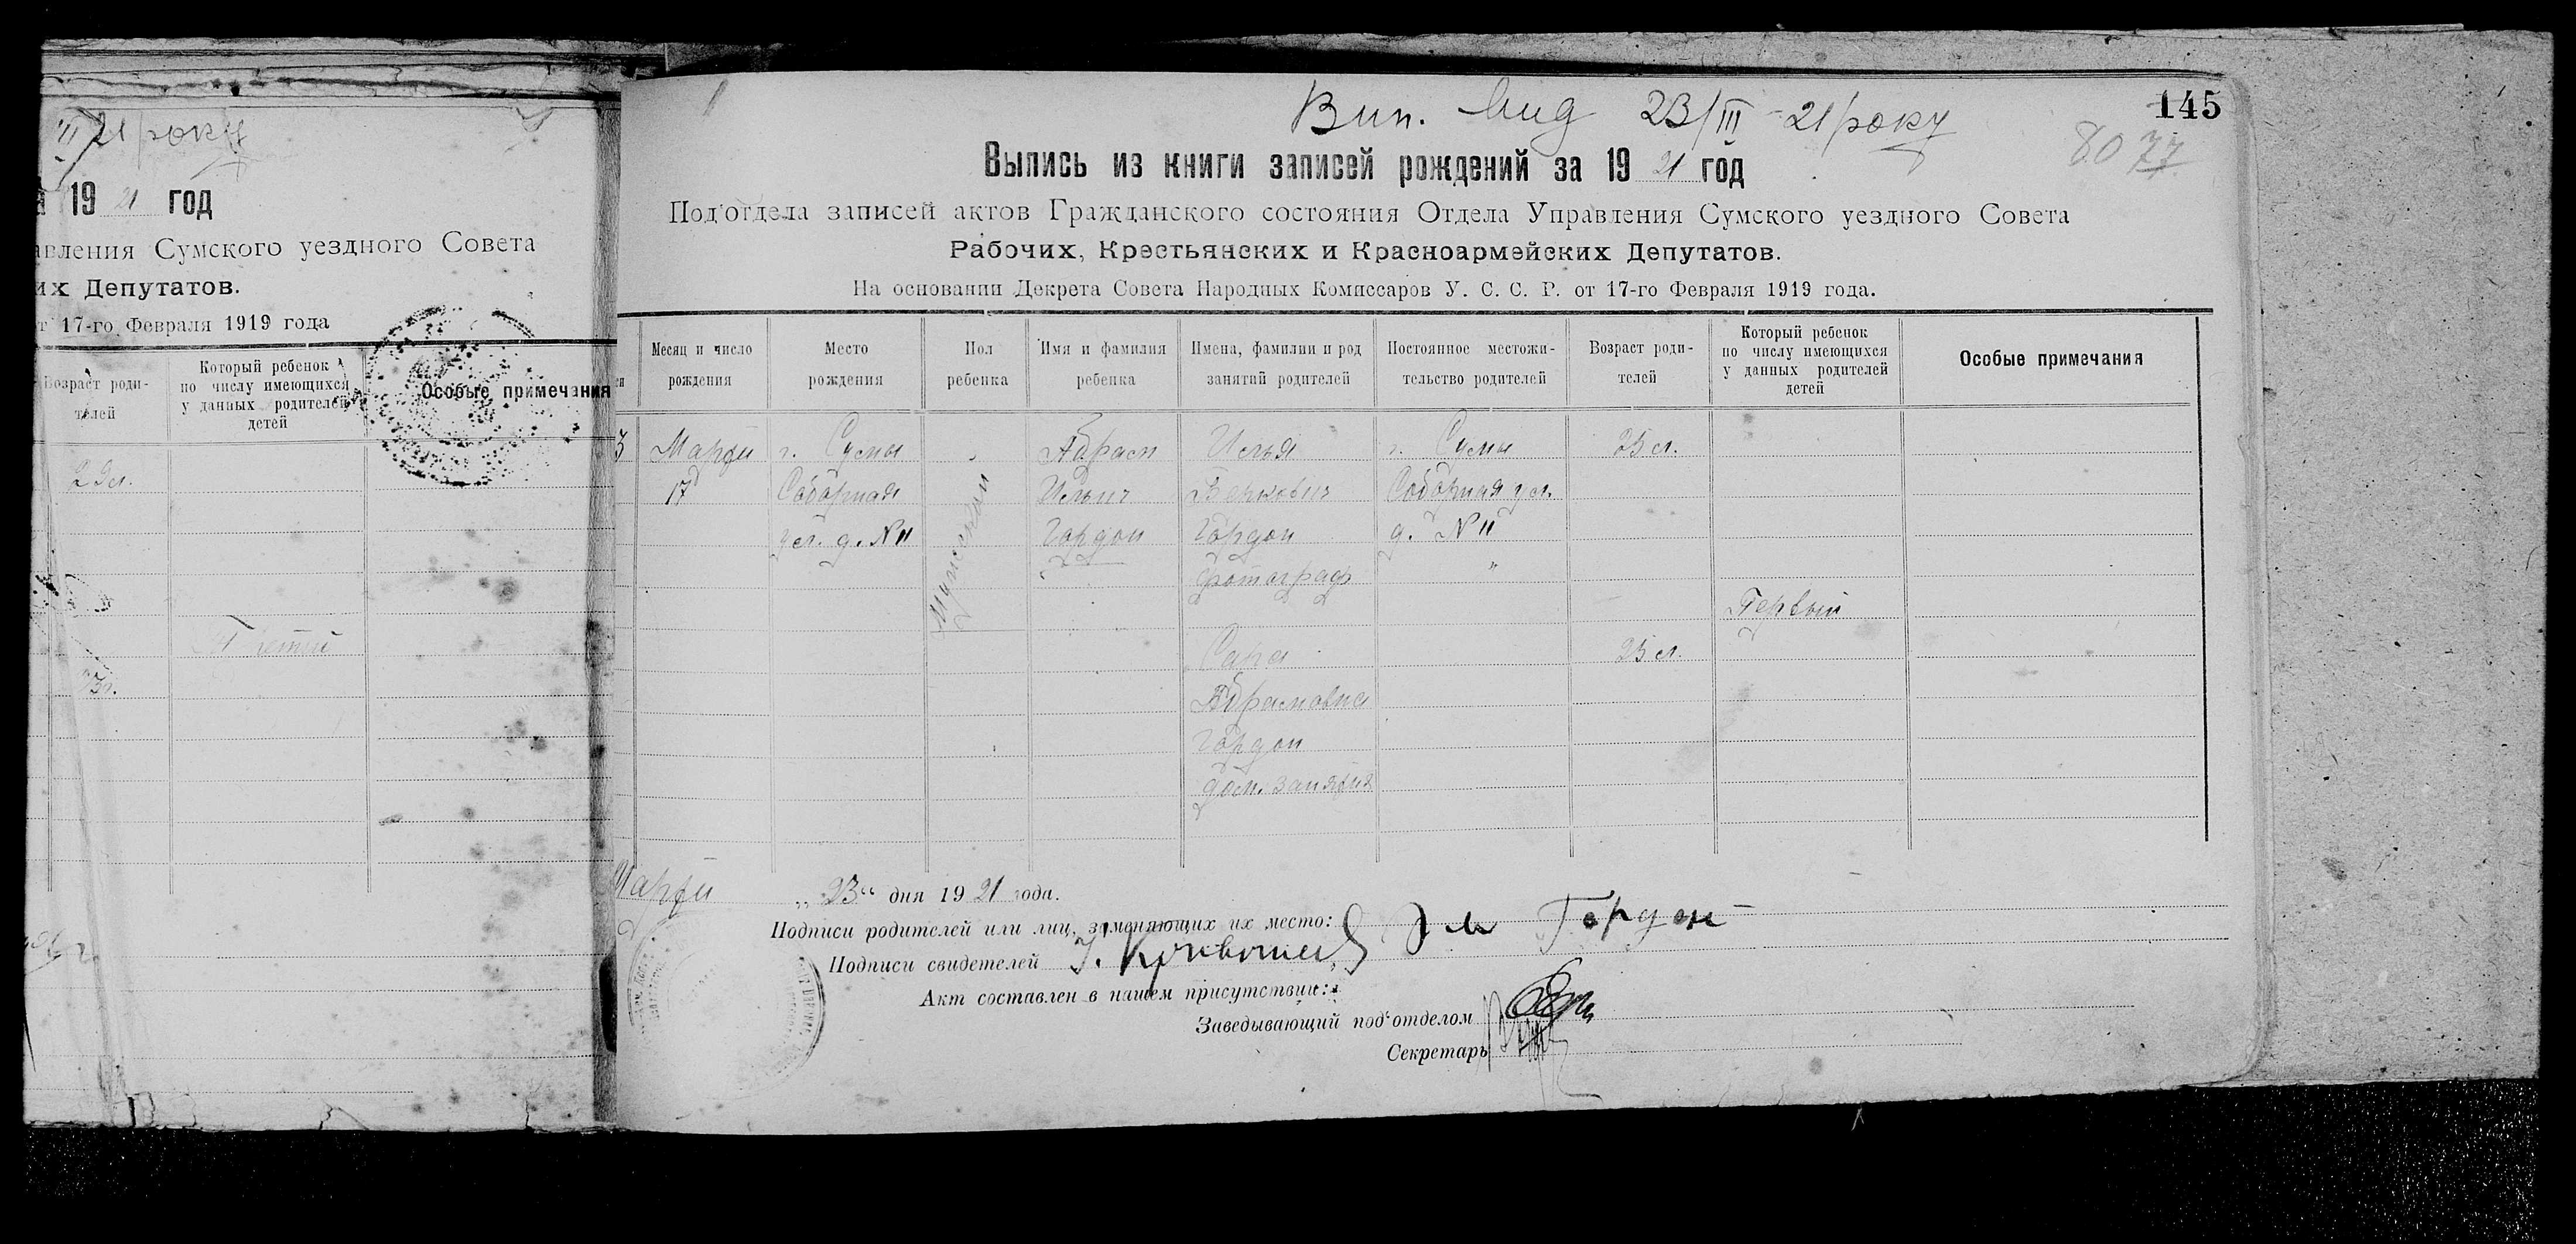 III/21 року
19 21 год
авления Сумского уездного Совета
их Депутатов.
т 17-го Февраля 1919 года
Возраст роди-
телей
Который ребенок
по числу имеющихся
у данных родителей
детей
Особые примечания
22 л.
145
Вип. вид 23/III – 21 року
80 77
Выпись из книги записей рождений за 19 21 год
Под'отдела записей актов Гражданского состояния Отдела Управления Сумского уездного Совета
Рабочих, Крестьянских и Красноармейских Депутатов.
На основании Декрета Совета Народных Комиссаров У. С. С. Р. от 17-го Февраля 1919 года.
Месяц и число
рождения
Место
рождения
Пол
ребенка
Имя и фамилия
ребенка
Имена, фамилии и род
занятий родителей
Постоянное местожи-
тельство родителей
Возраст роди-
телей
Который ребенок
по числу имеющихся
у данных родителей
детей
Особые примечания
Марта
17
г. Сумы
Соборная
ул. д. N 11
Мужской
Абрам
Ильич
Гордон
Илья
Беркович
Гордон
фотограф
Сара
Абрамовна
Гордон
дом. занятия
г. Сумы
Соборная ул.
д. N 11
"
25 л.
25 л.
Первый
Марта „23“ дня 19 21 года.
Подписи родителей или лиц, заменяющих их место: Гордон
Подписи свидетелей
Акт составлен в нашем присутствии:
Заведывающий под'отделом
Секретарь